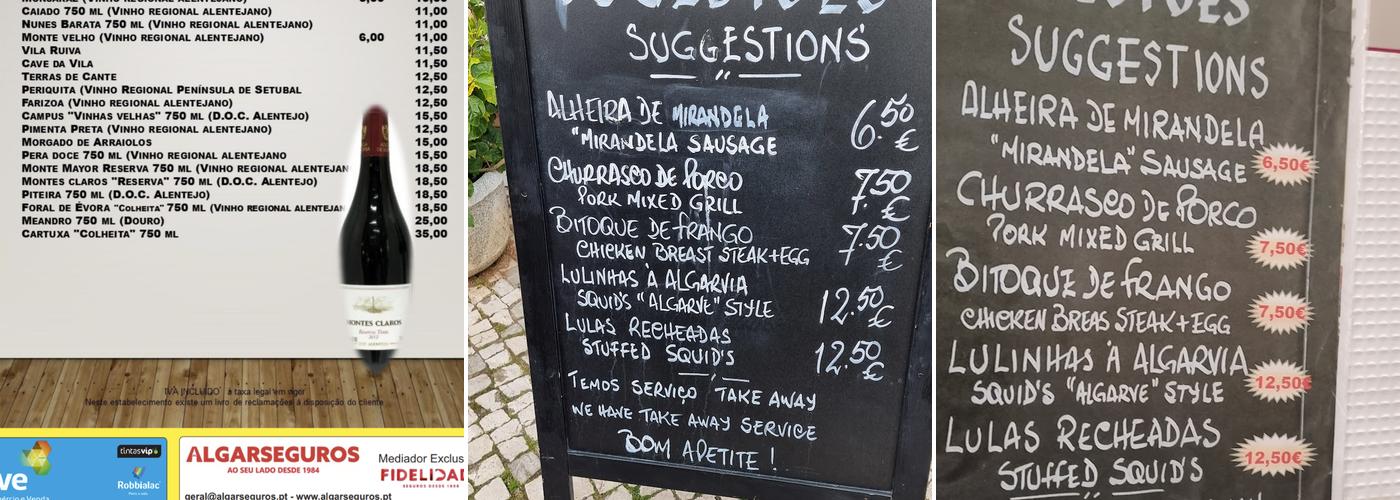 CAIADO 750 ML (VINHO REGIONAL ALENTEJANO) 11,00
NUNES BARATA 750 ML (VINHO REGIONAL ALENTEJANO) 11,00
MONTE VELHO (VINHO REGIONAL ALENTEJANO) 6,00 11,00
VILA RUIVA 11,50
CAVE DA VILA 11,50
TERRAS DE CANTE 12,50
PERIQUITA (VINHO REGIONAL PENÍNSULA DE SETUBAL 12,50
FARIZOA (VINHO REGIONAL ALENTEJANO) 12,50
CAMPUS "VINHAS VELHAS" 750 ML (D.O.C. ALENTEJO) 15,50
PIMENTA PRETA (VINHO REGIONAL ALENTEJANO) 12,50
MORGADO DE ARRAIOLOS 15,00
PERA DOCE 750 ML (VINHO REGIONAL ALENTEJANO 15,50
MONTE MAYOR RESERVA 750 ML (VINHO REGIONAL ALENTEJAN 18,50
MONTES CLAROS "RESERVA" 750 ML (D.O.C. ALENTEJO) 18,50
PITEIRA 750 ML (D.O.C. ALENTEJO) 18,50
FORAL DE ÉVORA "COLHEITA" 750 ML (VINHO REGIONAL ALENTEJAN 18,50
MEANDRO 750 ML (DOURO) 25,00
CARTUXA "COLHEITA" 750 ML 35,00
MONTES CLAROS
IVA INCLUIDO a taxa legal em vigor
Neste estabelecimento existe um livro de reclamações à disposição do cliente
ve
ércio e Venda
tintasvip
Robbialac
ALGARSEGUROS
AO SEU LADO DESDE 1984
geral@algarseguros.pt - www.algarseguros.pt
Mediador Exclus
FIDELIDA
SEGUROS DESDE 1808
SUGGESTIONS
ALHEIRA DE MIRANDELA
"MIRANDELA SAUSAGE 6.50 €
CHURRASCO DE PORCO
PORK MIXED GRILL 7.50 €
BITOQUE DE FRANGO
CHICKEN BREAST STEAK+EGG 7.50 €
LULINHAS À ALGARVIA
SQUID'S "ALGARVE" STYLE 12.50 €
LULAS RECHEADAS
STUFFED SQUID'S 12.50 €
TEMOS SERVIÇO TAKE AWAY
WE HAVE TAKE AWAY SERVICE
BOM APETITE !
SUGGESTIONS
ALHEIRA DE MIRANDELA
"MIRANDELA" SAUSAGE 6,50€
CHURRASCO DE PORCO
PORK MIXED GRILL 7,50€
BITOQUE DE FRANGO
CHICKEN BREAS STEAK+EGG 7,50€
LULINHAS À ALGARVIA
SQUID'S "ALGARVE" STYLE 12,50€
LULAS RECHEADAS
STUFFED SQUID'S 12,50€